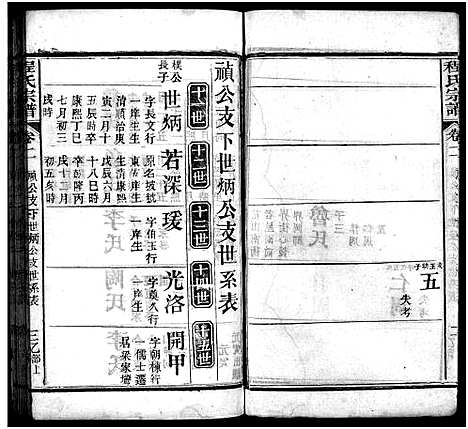 程氏宗譜
卷二
五
失考
禎公支下世炳公支世系表
十一世
十二世
十三世
十四世
十五世
樸公
長子
世炳
字長文行
一岸庠生
生順治庚
寅二月十
五辰時卒
康熙丁巳
七月初三
戌時
若深
原名坡號
東岸庠生
生康熙
戊辰六月
十八巳時
卒乾隆丙
戌十二月
初五亥時
瑗
字伯玉行
一
光洛
字奠久行
一
開甲
字朝棟行
一儒士遷
居梁家壋
程氏宗譜
卷二
禎公支下世炳公支世系表
乙部上